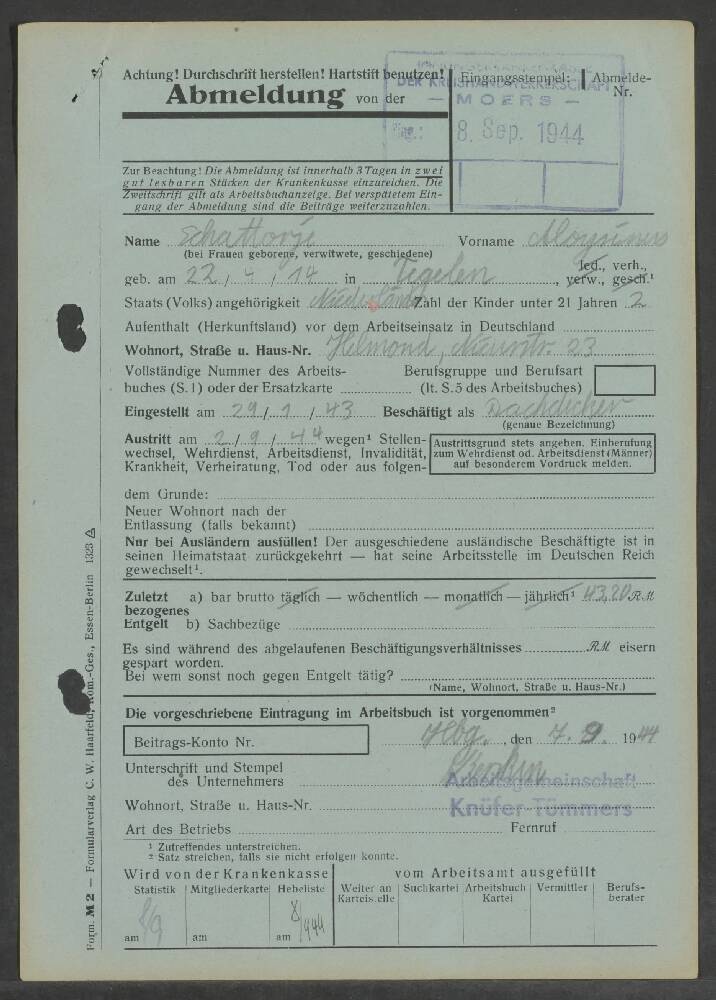 Achtung! Durchschrift herstellen! Hartstift benutzen!
Abmeldung von der
DER KREISHANDWERKERSCHAFT
— MOERS —
Eing.: 8. Sep. 1944
Eingangsstempel:
Abmelde-
Nr.
Zur Beachtung! Die Abmeldung ist innerhalb 3 Tagen in zwei
gut lesbaren Stücken der Krankenkasse einzureichen. Die
Zweitschrift gilt als Arbeitsbuchanzeige. Bei verspätetem Ein-
gang der Abmeldung sind die Beiträge weiterzuzahlen.
Name Schattorjé Vorname Aloysinus
(bei Frauen geborene, verwitwete, geschiedene)
led., verh.,
geb. am 22 / 4 / 14 in Tegelen, verw., gesch.¹
Staats (Volks) angehörigkeit Niederländ. Zahl der Kinder unter 21 Jahren 2
Aufenthalt (Herkunftsland) vor dem Arbeitseinsatz in Deutschland
Wohnort, Straße u. Haus-Nr. Helmond, Nieuwstr. 23
Vollständige Nummer des Arbeits-
buches (S. 1) oder der Ersatzkarte
Berufsgruppe und Berufsart
(lt. S. 5 des Arbeitsbuches)
Eingestellt am 29 / 1 / 43 Beschäftigt als Dachdecker
(genaue Bezeichnung)
Austritt am 2 / 9 / 44 wegen¹ Stellen-
wechsel, Wehrdienst, Arbeitsdienst, Invalidität,
Krankheit, Verheiratung, Tod oder aus folgen-
Austrittsgrund stets angeben. Einberufung
zum Wehrdienst od. Arbeitsdienst (Männer)
auf besonderem Vordruck melden.
dem Grunde:
Neuer Wohnort nach der
Entlassung (falls bekannt)
Nur bei Ausländern ausfüllen! Der ausgeschiedene ausländische Beschäftigte ist in
seinen Heimatstaat zurückgekehrt — hat seine Arbeitsstelle im Deutschen Reich
gewechselt¹.
Zuletzt a) bar brutto täglich — wöchentlich — monatlich — jährlich¹ 43,20 RM
bezogenes
Entgelt b) Sachbezüge
Es sind während des abgelaufenen Beschäftigungsverhältnisses RM eisern
gespart worden.
Bei wem sonst noch gegen Entgelt tätig?
(Name, Wohnort, Straße u. Haus-Nr.)
Die vorgeschriebene Eintragung im Arbeitsbuch ist vorgenommen²
Beitrags-Konto Nr.
Hbg., den 7. 9. 1944
Unterschrift und Stempel
des Unternehmers
Arbeitsgemeinschaft
Knüfer Tümmers
Wohnort, Straße u. Haus-Nr.
Art des Betriebs Fernruf
¹ Zutreffendes unterstreichen.
² Satz streichen, falls sie nicht erfolgen konnte.
Wird von der Krankenkasse
vom Arbeitsamt ausgefüllt
Statistik
Mitgliederkartei
Hebeliste
Weiter an
Karteistelle
Suchkartei
Arbeitsbuch
Kartei
Vermittler
Berufs-
berater
am 8/9
am
am 8/9 44
Form. M 2 — Formularverlag C. W. Haarfeld, Kom.-Ges., Essen-Berlin 1323 A